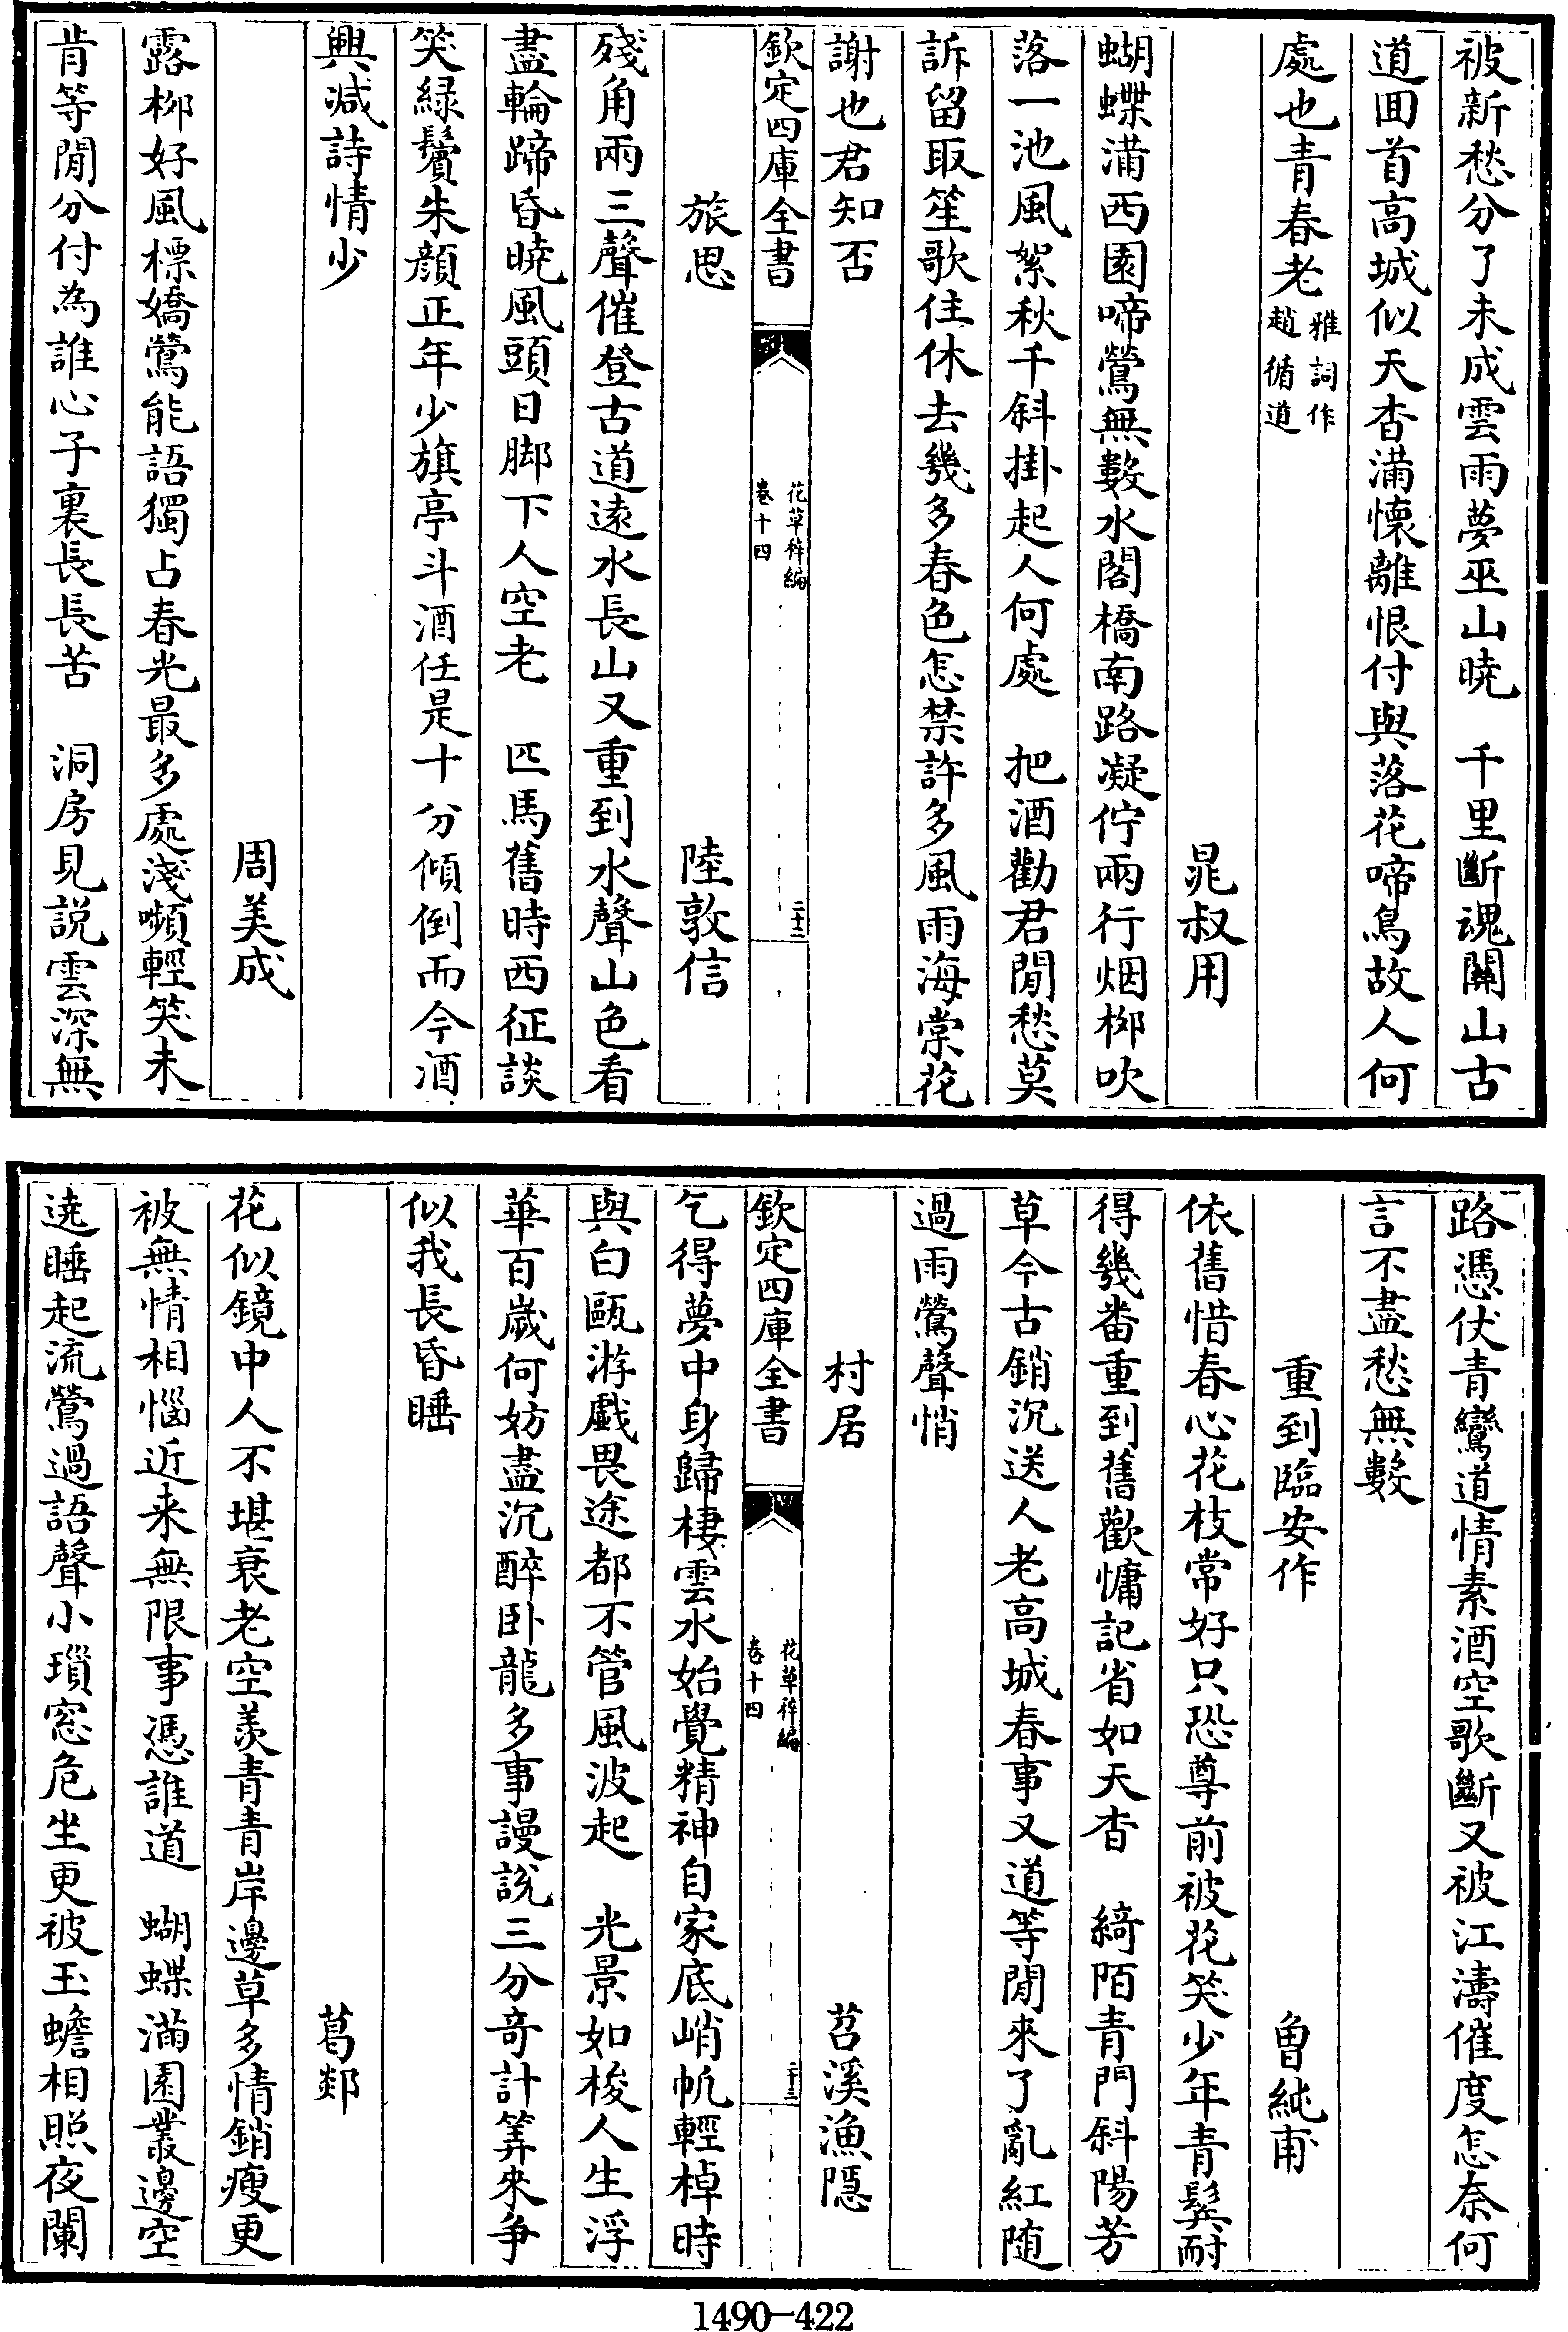 被新愁分了未成雲雨夢巫山曉　千里斷魂關山古
道囬首高城似天杳滿懷離恨付與落花啼鳥故人何
處也青春老雅詞作趙循道
晁叔用
蝴蝶滿西園啼鶯無數水閣橋南路凝佇兩行烟栁吹
落一池風絮秋千斜掛起人何處　把酒勸君閒愁莫
訴留取笙歌住休去幾多春色怎禁許多風雨海棠花
謝也君知否
欽定四庫全書　花草稡編卷十四　二十二
旅思　陸敦信
殘角兩三聲催登古道逺水長山又重到水聲山色看
盡輪蹄昏曉風頭日脚下人空老　匹馬舊時西征談
笑緑鬢朱顔正年少旗亭斗酒任是十分傾倒而今酒
興减詩情少
周美成
露栁好風標嬌鶯能語獨占春光最多處淺嚬輕笑未
肯等閒分付為誰心子裏長長苦　洞房見説雲深無
路憑伏青鸞道情素酒空歌斷又被江濤催度怎奈何
言不盡愁無數
重到臨安作　曾純甫
依舊惜春心花枝常好只恐尊前被花笑少年青鬂耐
得幾畨重到舊歡慵記省如天杳　綺陌青門斜陽芳
草今古銷沉送人老髙城春事又道等閒來了亂紅随
過雨鶯聲悄
村居　苕溪漁隠
乞得夢中身歸棲雲水始覺精神自家底峭帆輕棹時
與白甌游戲畏途都不管風波起　光景如梭人生浮
華百歲何妨盡沉醉卧龍多事謾説三分竒計筭來争
似我長昏睡
欽定四庫全書　花草稡編卷十四　二十三
葛郯
花似鏡中人不堪衰老空羡青青岸邊草多情銷瘦更
被無情相惱近来無限事憑誰道　蝴蝶滿園叢邊空
遶睡起流鶯過語聲小瑣窓危坐更被玉蟾相照夜闌
1490-422